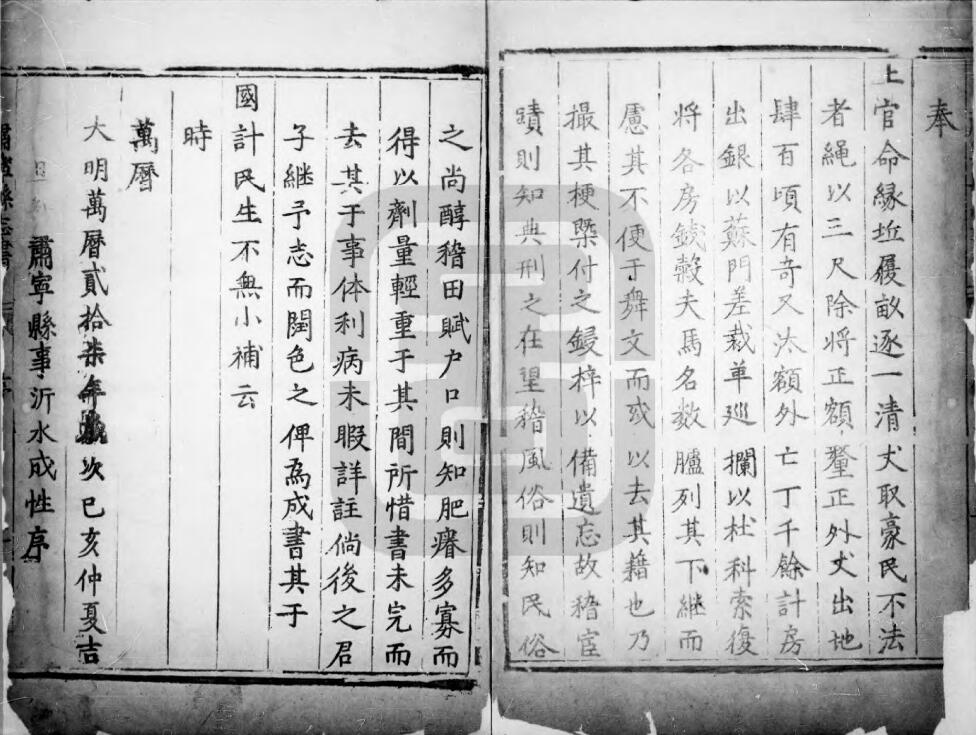 奉
上官命緣坵履畝逐一清丈取豪民不法
者繩以三尺除將正額釐正外丈出地
肆百頃有奇又汰額外亡丁千餘計房
出銀以蘇門差裁革巡攔以杜科索復
將各房錢穀夫馬名數臚列其下継而
慮其不便于舞文而或以去其籍也乃
撮其梗槩付之鋟梓以備遺忘故稽宦
蹟則知典刑之在望稽風俗則知民俗
之尚醇稽田賦户口則知肥瘠多寡而
得以劑量輕重于其間所惜書未完而
去其于事体利病未暇詳註倘後之君
子継予志而閏色之俾為成書其于
國計民生不無小補云
時
萬曆
大明萬曆貳拾柒年歲次已亥仲夏吉
肅寧縣事沂水成性序
肅寧縣志書 序